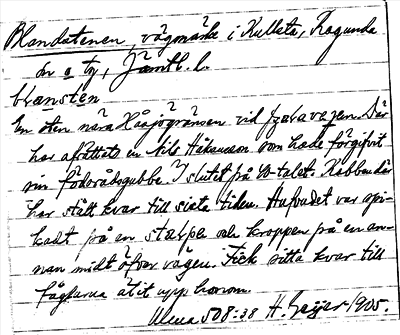 Blandstenen, vägmärke i Kullsta, Ragunda
sn o tg, Jämtl. l.
blænsten
En sten nära Håsjögränsen vid vägen. Där
har afrättats en Nils Håkansson som hade förgifvit
sin födorådsgubbe i slutet på 10-talet. där
har stått kvar till sista tiden. Hufvudet var spi-
kadt på en och kroppen på en an-
nan midt öfver vägen. Fick sitta kvar till
fåglarna ätit upp honom.
Ulma 508:38 H. Geijer 1905.